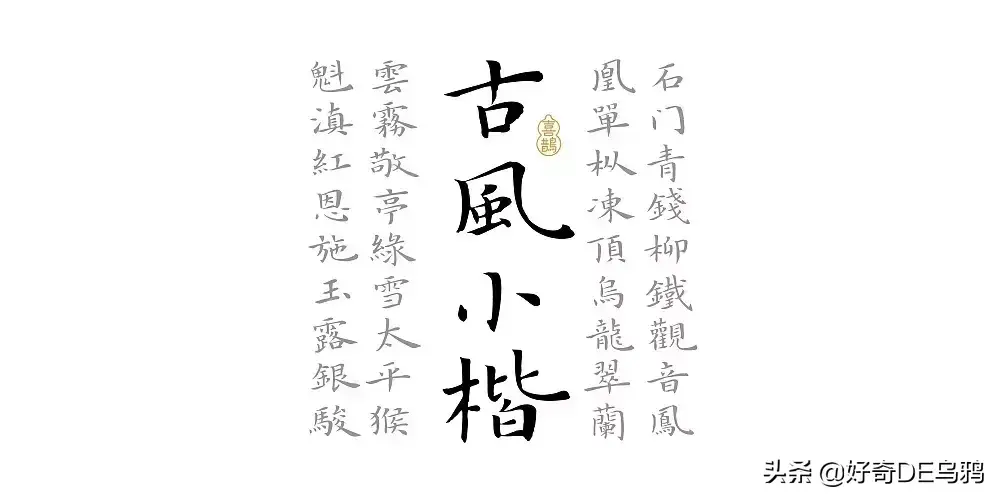 石门青錢柳鐵觀音鳳
凰單枞凍頂烏龍翠蘭
古風小楷
喜鵲
雲霧敬亭綠雪太平猴
魁滇紅恩施玉露銀駿
头条 @好奇DE乌鸦